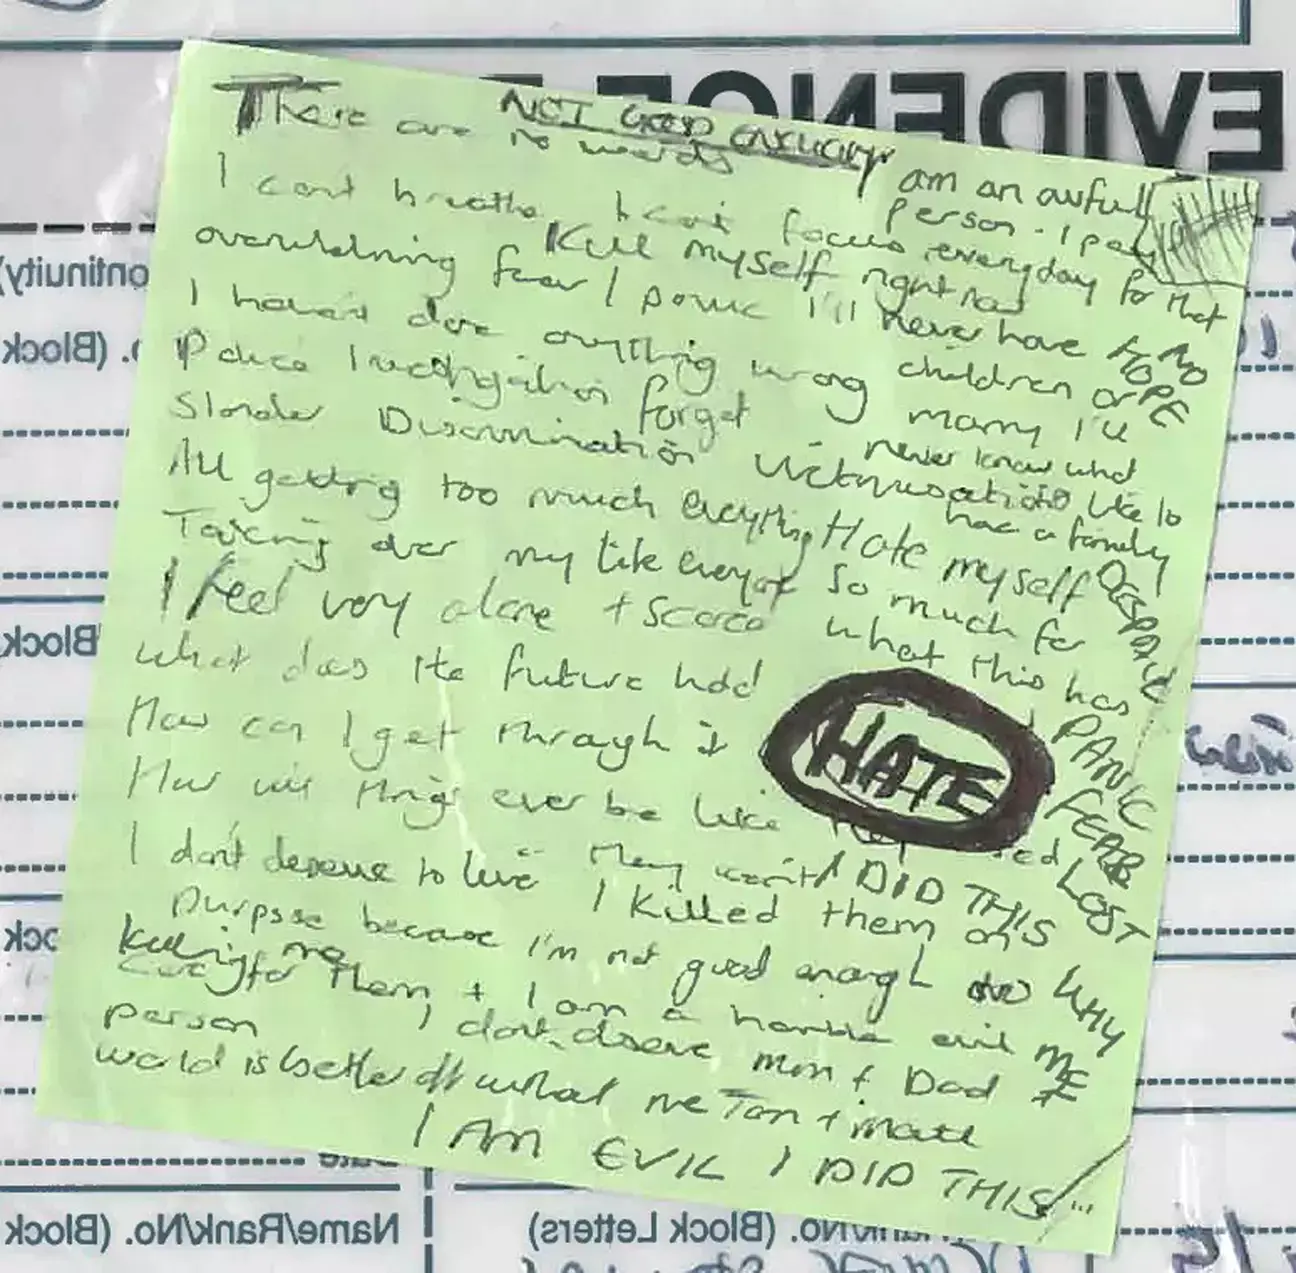 EVIDENCE
NOT GOOD ENOUGH
There are no words
I am an awful person. I pay everyday for that
I cant breathe I cant focus
overwhelming fear / panic
Kill myself right now
I'll never have children or marry I'll never know what
like to have a family
NO HOPE
I haven't done anything wrong
Police Investigation forget
Slander Discrimination Victimisation
All getting too much everything
Taking over my life
Hate myself so much for what this has
DESPAIR
I feel very alone + scared
What does the future hold
How can I get through it
HATE
PANIC
FEAR
LOST
How will things ever be like they
I don't deserve to live
They won't
I DID THIS
WHY ME
I killed them on purpose because I'm not good enough to
care for them + I am a horrible evil person
killing me
I dont deserve Mum + Dad
world is better off without me Tom + Matt
I AM EVIL I DID THIS
Continuity)
No. (Block
(Block
Block
Date
Name/Rank/No. (Block
/No. (Block Letters)